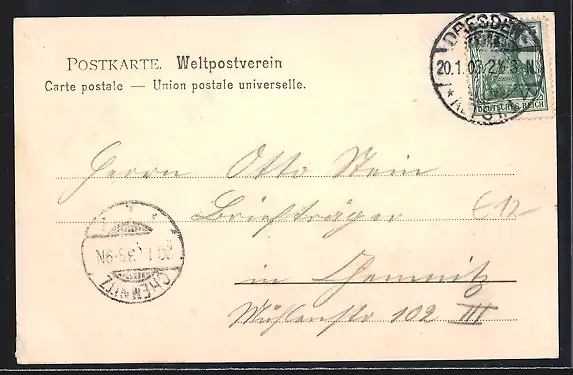 POSTKARTE. Weltpostverein
Carte postale — Union postale universelle.
DRESDEN
20.1.03. 2½-3 N
* ALTST.
DEUTSCHES REICH
Herrn Otto Stein
Briefträger
in Chemnitz
Mühlenstr 102 III
CHEMNITZ
20.1.
8-9N